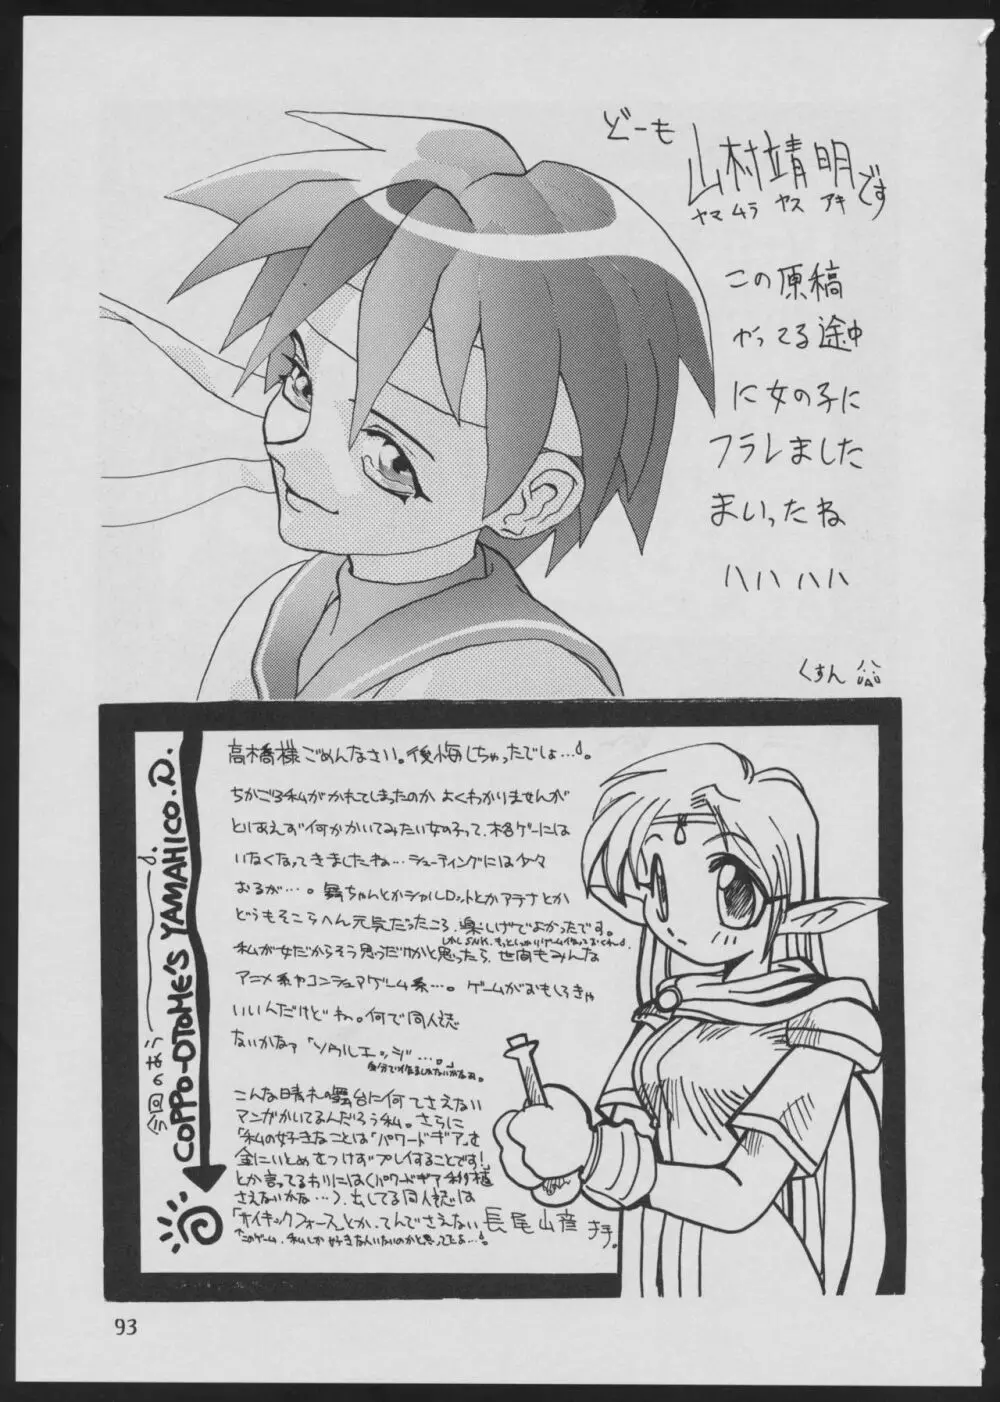 どーも
山村靖明です
ヤマムラ ヤス アキ
この原稿
やってる途中
に女の子に
フラレました
まいったね
ハハハハ
くすん
今回のあう
COPPO-OTOME'S YAMAHICO.D.
高橋様ごめんなさい。後悔しちゃったでしょ…。
ちかごろ私がかれてしまったのか よくわかりませんが
とりあえず何かかいてみたい女の子って、格ゲーには
いなくなってきましたね…シューティングには少々
おるが…。舞ちゃんとかシャルロットとかアテナとか
どうもそこらへん元気だったころ、楽しげでよかったです。
私が女だからそう思っただけかと思ったら、世間もみんな
アニメ系やコンシュマゲーム系…。ゲームがおもしろきゃ
いいんだけどね。何で同人誌
ないかなァ「ソウルエッジ」…。
こんな晴れの舞台に何てさえない
マンガかいてるんだろう私。さらに
「私の好きなことは「パワードギア」を
金にいとめをつけずプレイすることです!」
とか言ってるわりには(パワードギア移植
さえないかな…)、出してる同人誌は
「サイキックフォース」とか、てんでさえない 長尾山彦 拝。
このゲーム、私しか好きな人いないのかと思ってたよ…。
93